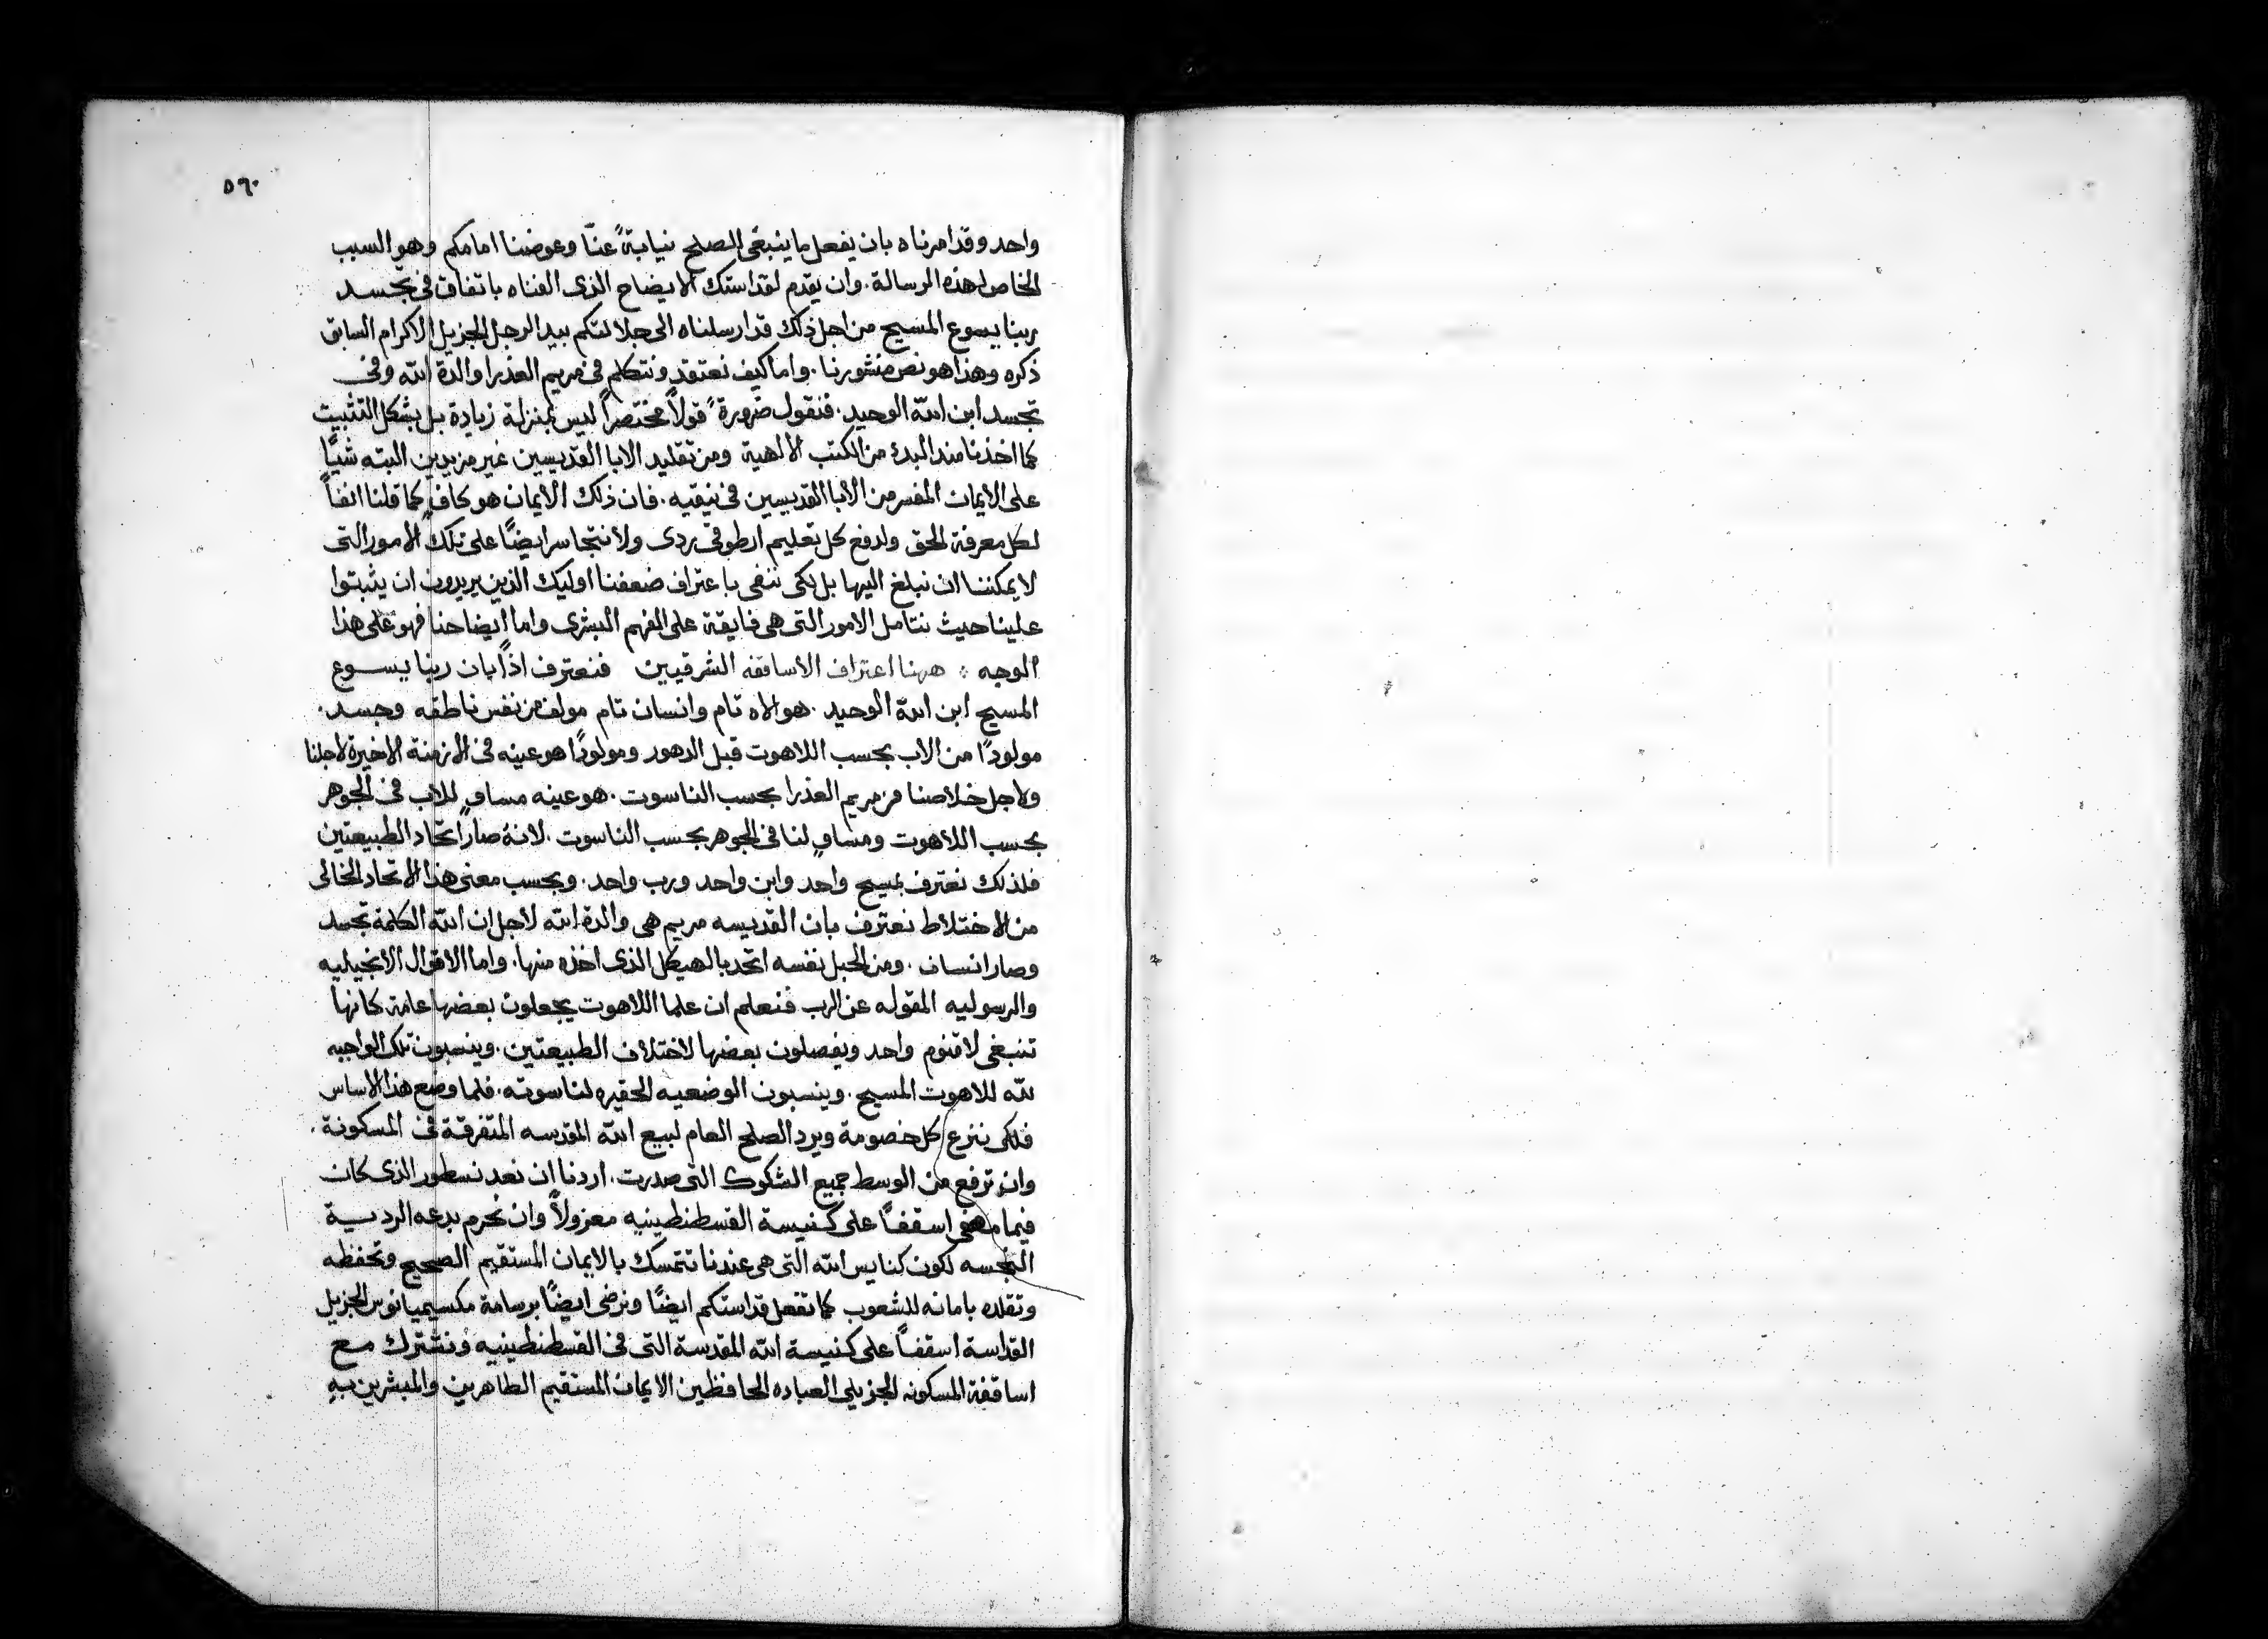 ٥٦٠
واحد وقد امرناه بان يفعل ما ينبغى للصلح نيابةً عنّا وعوضنا امامكم وهو السبب
الخاص لهذه الرسالة. وان يقدم لقداستك الايضاح الذى الفناه باتفاق فى تجسد
ربنا يسوع المسيح من اجل ذلك قد ارسلناه الى جلالتكم بيد الرجل الجزيل الاكرام السابق
ذكره وهذا هو نص منشورنا. واما كيف نعتقد ونتكلم فى مريم العذرا والدة الله وفى
تجسد ابن الله الوحيد. فنقول ضرورةً قولاً مختصراً ليس بمنزلة زيادة بل بشكل التثبيت
كما اخذنا منذ البدء من الكتب الالهية ومن تقليد الابا القديسين غير مزيدين البته شيًا
على الايمان المفسر من الابا القديسين فى نيقيه. فان ذلك الايمان هو كافٍ كما قلنا انفاً
لكل معرفة الحق ولدفع كل تعليم ارطوقى ردى ولا نتجاسر ايضًا على تلك الامور التى
لا يمكننا ان نبلغ اليها بل لكى ننفى باعتراف ضعفنا اوليك الذين يريدون ان يثبتوا
علينا حيث نتامل الامور التى هى فايقة على الفهم البشرى واما ايضاحنا فهو على هذا
الوجه ؞ ههنا اعتراف الاساقفه الشرقيين فنعترف اذاً بان ربنا يسوع
المسيح ابن الله الوحيد. هو الاه تام وانسان تام مولف من نفس ناطقه وجسد.
مولودًا من الاب بحسب اللاهوت قبل الدهور ومولودًا هو عينه فى الازمنة الاخيرة لاجلنا
ولاجل خلاصنا من مريم العذرا بحسب الناسوت. هو عينه مساوٍ للاب فى الجوهر
بحسب اللاهوت ومساوٍ لنا فى الجوهر بحسب الناسوت. لانهُ صار اتحاد الطبيعتين
فلذلك نعترف بمسيح واحد وابن واحد ورب واحد. وبحسب معنى هذا الاتحاد الخالى
من الاختلاط نعترف بان القديسه مريم هى والدة الله لاجل ان الله الكلمة تجسد
وصار انسان. ومن الحبل نفسه اتحد بالهيكل الذى اخذه منها. واما الاقوال الانجيليه
والرسوليه المقوله عن الرب فنعلم ان علما اللاهوت يجعلون بعضها عامة كانها
تنبغى لاقنوم واحد ويفصلون بعضها لاختلاف الطبيعتين. وينسبون تلك الواجبه
لله للاهوت المسيح. وينسبون الوضعيه الحقيره لناسوته. فلما وضع هذا الاساس
فلكى ننزع كل خصومة ويرد الصلح العام لبيع الله المقدسه المتفرقة فى المسكونة.
وان ترفع من الوسط جميع الشكوك التى صدرت. اردنا ان نعد نسطور الذى كان
فيما مضى اسقفاً على كنيسة القسطنطينيه معزولاً وان نحرم بدعه الردية
النجسه لكون كنايس الله التى هى عندنا تتمسك بالايمان المستقيم الصحيح وتحفظه
وتقلده بامانه للشعوب كما تفعل قداستكم ايضًا ونرضى ايضًا برسامة مكسيميانوس الجزيل
القداسة اسقفاً على كنيسة الله المقدسة التى فى القسطنطينيه ونشترك مع
اساقفة المسكونه الجزيلى العباده الحافظين الايمان المستقيم الطاهرين والمبشرين بهِ